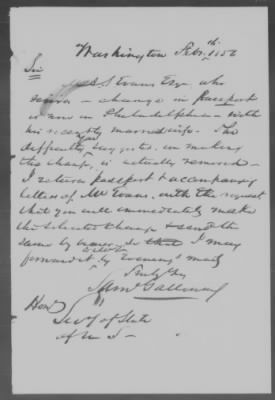 Washington Feb. 1856
Sir
S Evans Esqr who
desires a change in Passport
is now in Philadelphia with
his recently married wife. The
difficulty you suggested in making
this change is actually removed
I return Passport & accompany
letters of Mr Evans, with the request
that you will immediately make
the change & send the
same by so that I may
forward it by Evening's mail
Truly Yrs
Saml Galloway
Hon
Secy of State
of U S